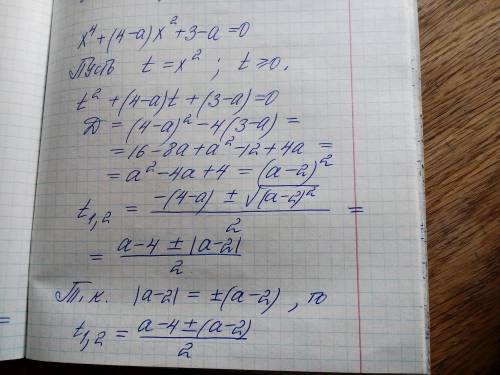 x⁴+(4-a)x²+3-a=0
Пусть t=x² ; t≥0.
t²+(4-a)t+(3-a)=0
Д = (4-a)²-4(3-a) =
=16-8a+a²-12+4a =
=a²-4a+4=(a-2)²
t₁,₂ = (-(4-a) ± √(a-2)²)/2 =
= (a-4 ± |a-2|)/2
Т.к. |a-2| = ±(a-2) , то
t₁,₂ = (a-4±(a-2))/2
=